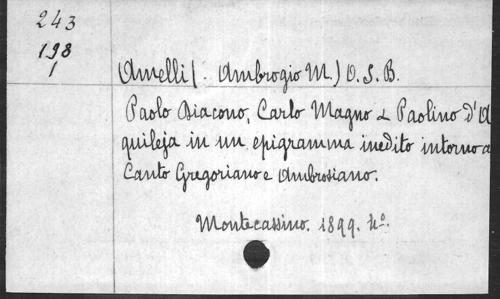 243
198
1
Amelli (. Ambrogio M.) O. S. B.
Paolo Diacono, Carlo Magno & Paolino d'A
quileja in un epigramma inedito intorno a
Canto Gregoriano e Ambrosiano.
Montecassino. 1899. 4º.